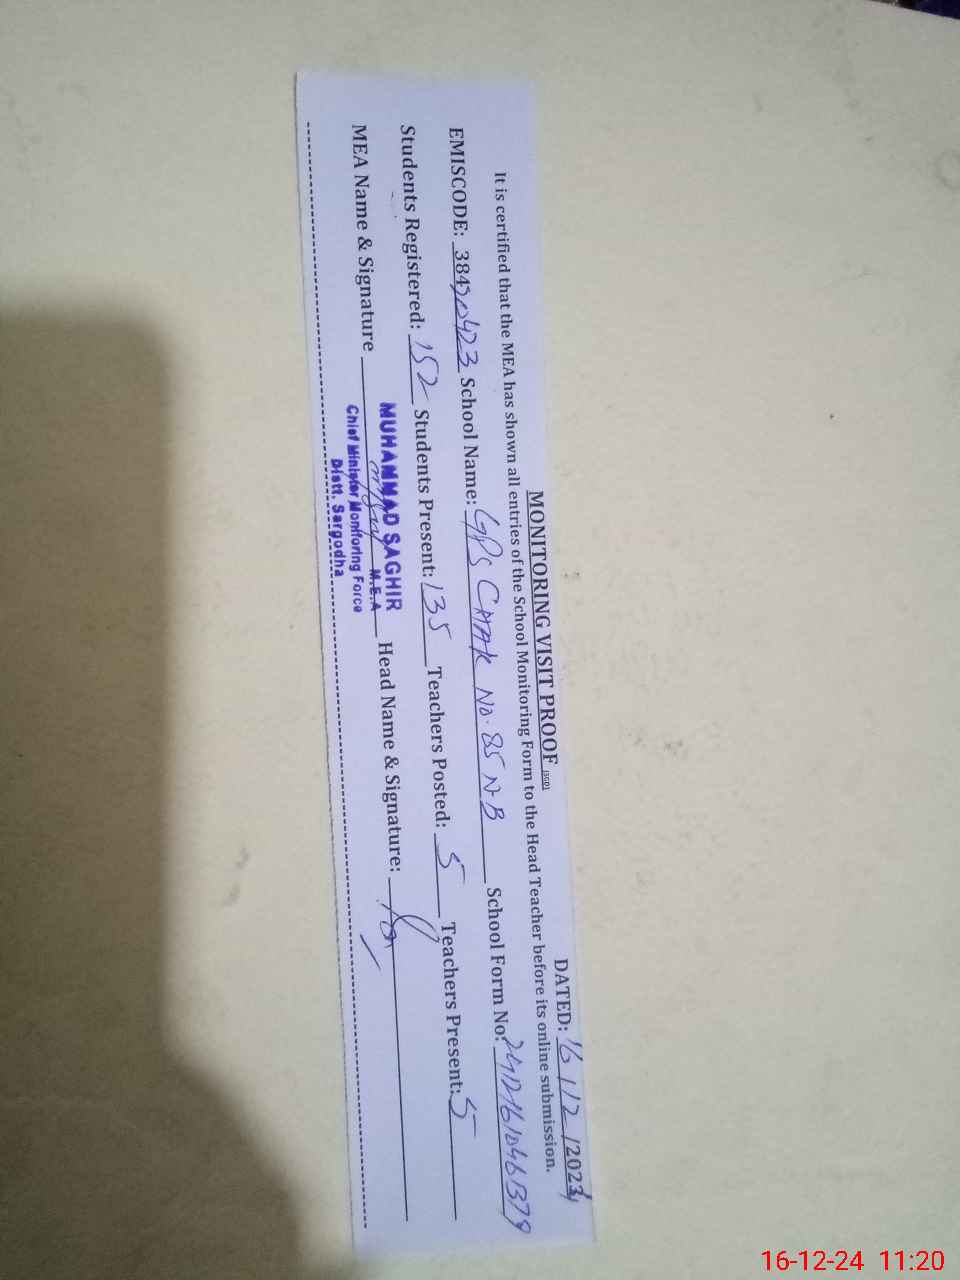 MONITORING VISIT PROOF (SGD)
DATED: 16/12/2024
It is certified that the MEA has shown all entries of the School Monitoring Form to the Head Teacher before its online submission.
EMISCODE: 38420423 School Name: GPS CHAK No. 85 NB School Form No: 24121610461378
Students Registered: 152 Students Present: 135 Teachers Posted: 5 Teachers Present: 5
MEA Name & Signature Head Name & Signature:
MUHAMMAD SAGHIR
M.E.A
Chief Minister Monitoring Force
Distt. Sargodha
16-12-24 11:20